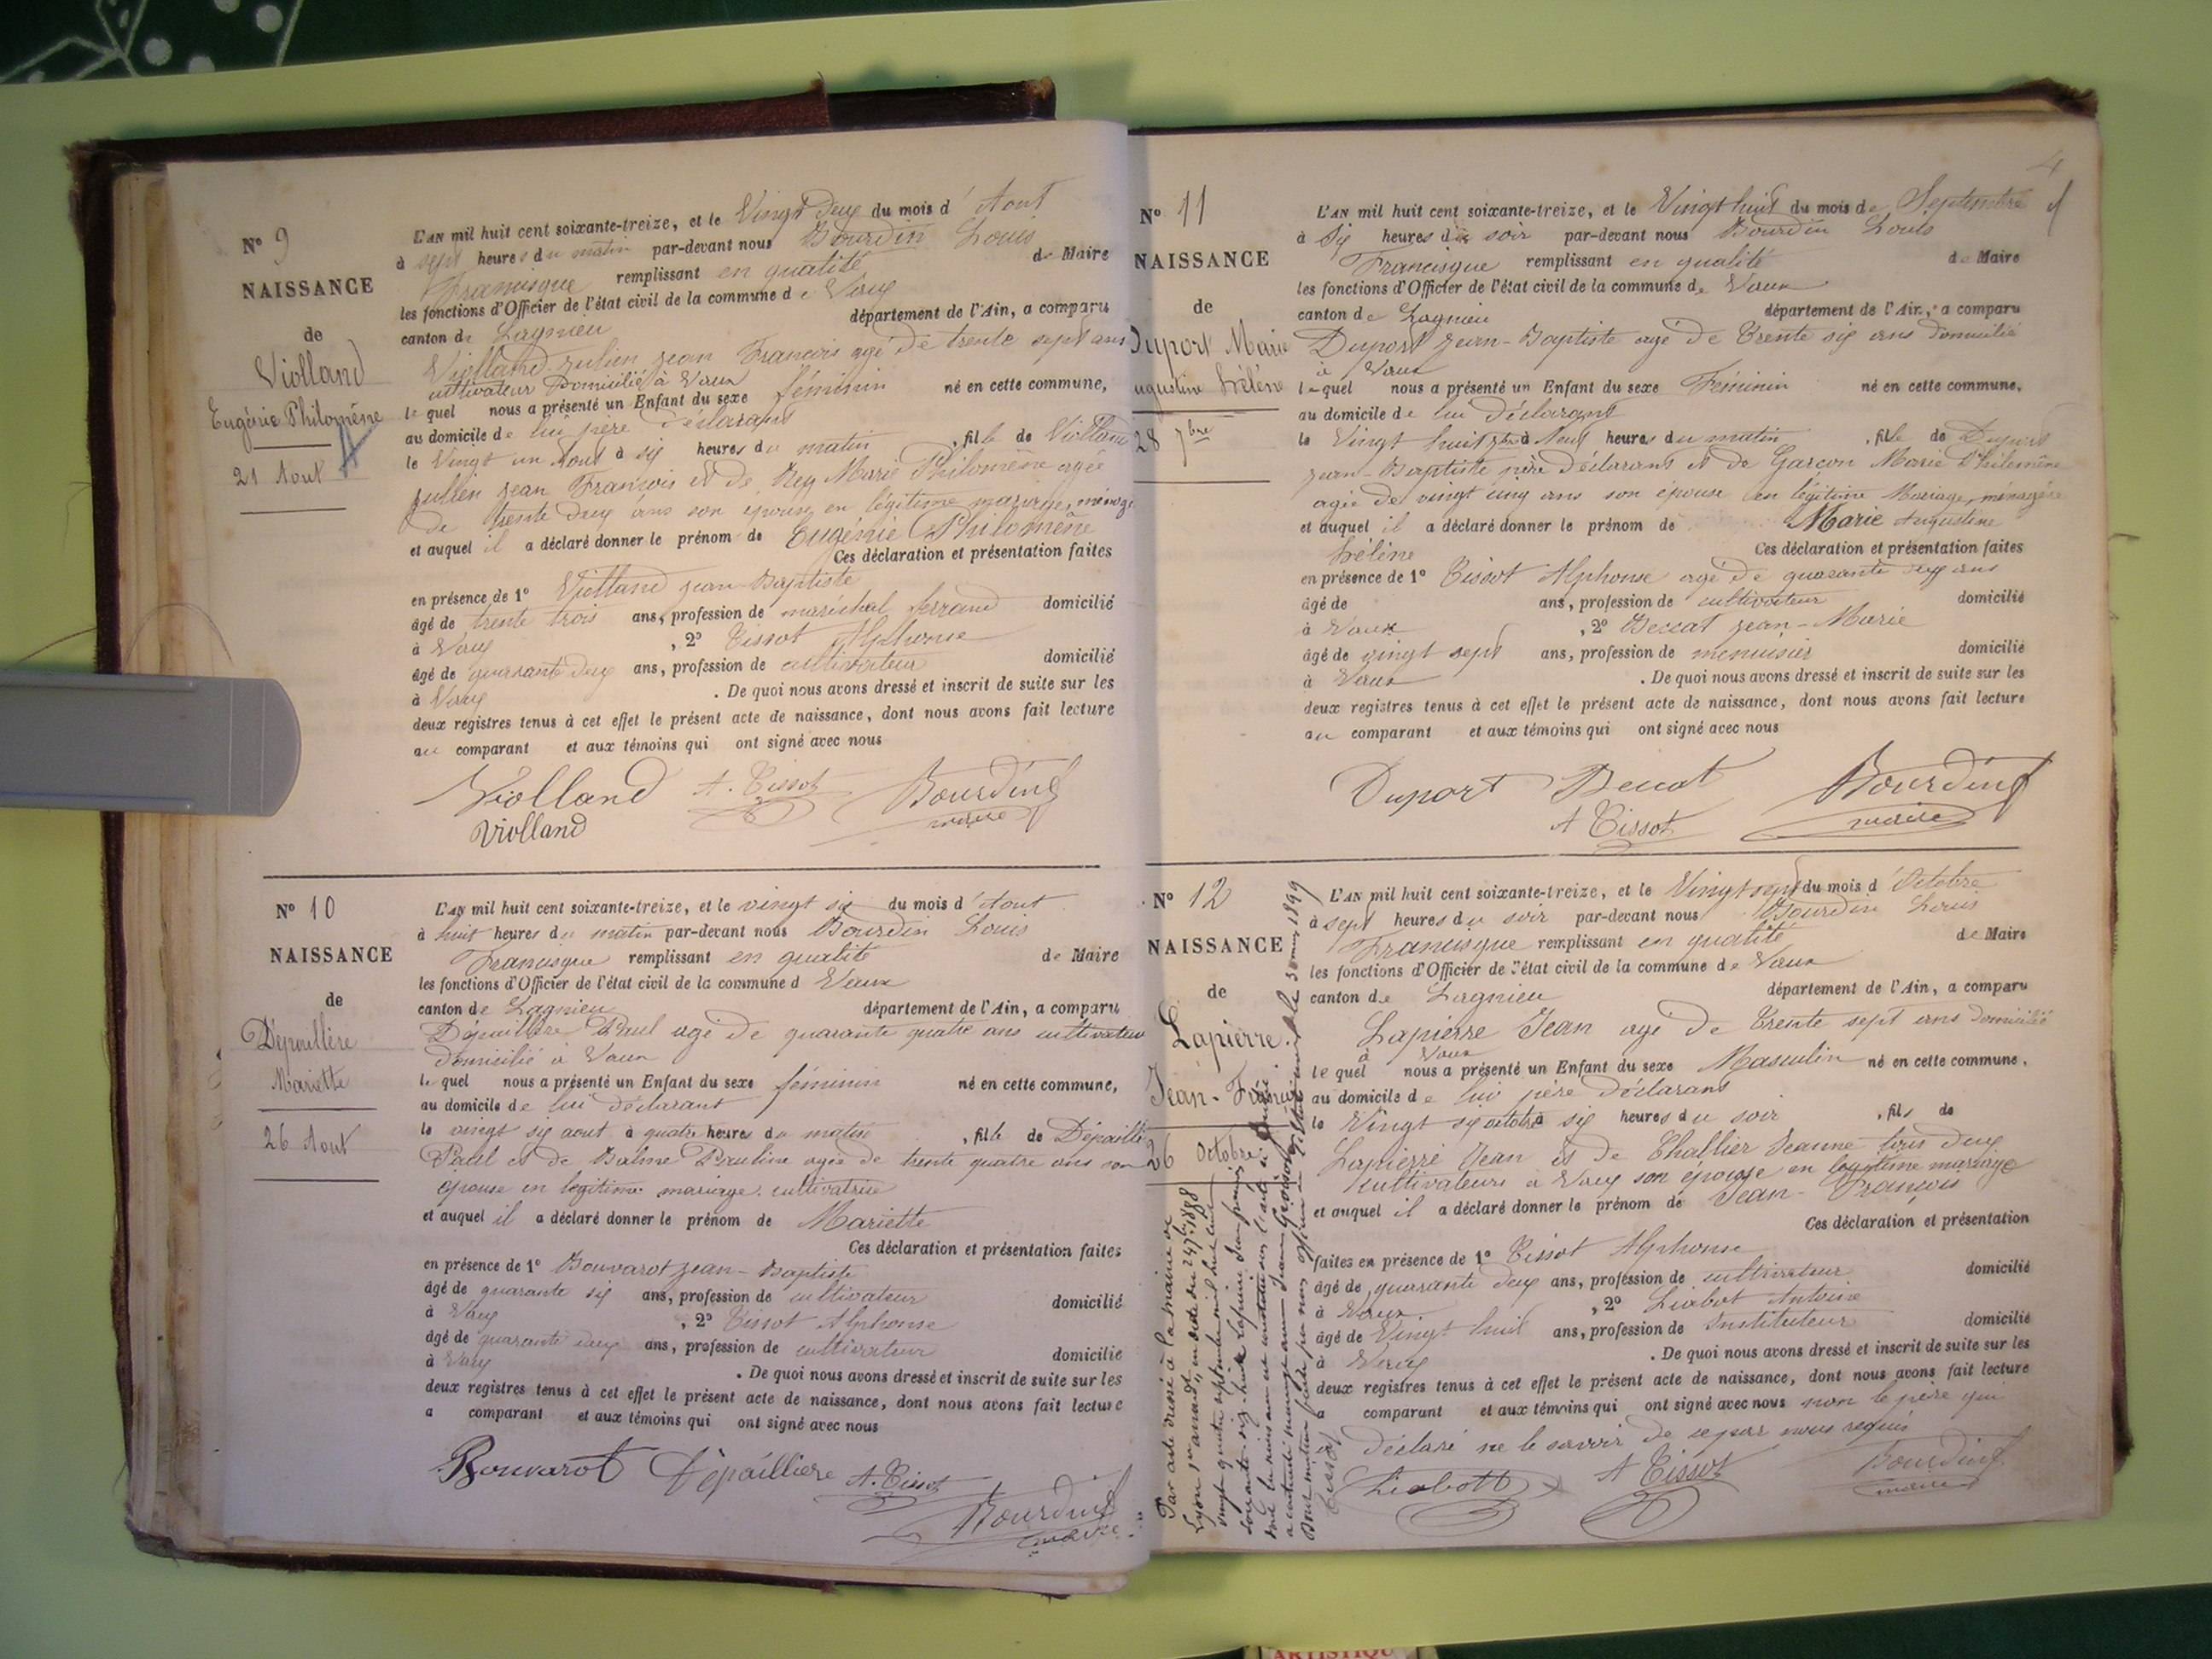 N° 9
NAISSANCE
de
Violland
Eugénie Philomène
21 Aout
L'AN mil huit cent soixante-treize, et le Vingt deux du mois d'Aout
à sept heures du matin par-devant nous Bourdin Louis
Francisque remplissant en qualité de Maire
les fonctions d'Officier de l'état civil de la commune de Vaux
canton de Lagnieu département de l'Ain, a comparu
Violland Julien Jean François agé de trente sept ans
cultivateur Domicilié à Vaux
lequel nous a présenté un Enfant du sexe féminin né en cette commune,
au domicile de lui père déclarant
le Vingt un Aout à six heures du matin, fille de Violland
Julien Jean François et de Rey Marie Philomène agée
de trente deux ans son épouse en légitime mariage, ménagè
et auquel il a déclaré donner le prénom de Eugénie Philomène
Ces déclaration et présentation faites
en présence de 1° Violland Jean-Baptiste
âgé de trente trois ans, profession de maréchal ferrand domicilié
à Vaux, 2° Tissot Alphonse
âgé de quarante deux ans, profession de cultivateur domicilié
à Vaux. De quoi nous avons dressé et inscrit de suite sur les
deux registres tenus à cet effet le présent acte de naissance, dont nous avons fait lecture
au comparant et aux témoins qui ont signé avec nous
Violland A. Tissot Bourdin
Violland maire
N° 10
NAISSANCE
de
Dépaullière
Mariette
26 Aout
L'AN mil huit cent soixante-treize, et le vingt six du mois d'Aout
à huit heures du matin par-devant nous Bourdin Louis
Francisque remplissant en qualité de Maire
les fonctions d'Officier de l'état civil de la commune d Vaux
canton de Lagnieu département de l'Ain, a comparu
Dépaillère Paul agé de quarante quatre ans cultivateur
domicilié à Vaux
lequel nous a présenté un Enfant du sexe féminin né en cette commune,
au domicile de lui déclarant
le vingt six aout à quatre heures du matin, fille de Dépailli
Paul et de Balme Pauline agée de trente quatre ans son
épouse en légitime mariage. cultivatrice
et auquel il a déclaré donner le prénom de Mariette
Ces déclaration et présentation faites
en présence de 1° Bouvarot Jean-Baptiste
âgé de quarante six ans, profession de cultivateur domicilié
à Vaux, 2° Tissot Alphonse
âgé de quarante deux ans, profession de cultivateur domicilié
à Vaux. De quoi nous avons dressé et inscrit de suite sur les
deux registres tenus à cet effet le présent acte de naissance, dont nous avons fait lecture
a comparant et aux témoins qui ont signé avec nous
Bouvarot Dépaillière A. Tissot
Bourdin
maire
4
N° 11
NAISSANCE
de
Duport Marie
ugustine Hélène
28 7bre
L'AN mil huit cent soixante-treize, et le Vingt huit du mois de Septembre
à Six heures du soir par-devant nous Bourdin Louis
Francisque remplissant en qualité de Maire
les fonctions d'Officier de l'état civil de la commune de Vaux
canton de Lagnieu département de l'Ain, a comparu
Duport Jean-Baptiste agé de Trente six ans domicilié
à Vaux
lequel nous a présenté un Enfant du sexe Féminin né en cette commune,
au domicile de lui déclarant
le Vingt huit 7bre à Neuf heures du matin, fille de Duport
Jean-Baptiste père déclarant et de Garçon Marie Philomène
agée de vingt cinq ans son épouse en légitime Mariage, ménagère
et auquel il a déclaré donner le prénom de Marie Augustine
Hélène Ces déclaration et présentation faites
en présence de 1° Tissot Alphonse agé de quarante deux ans
âgé de ans, profession de cultivateur domicilié
à Vaux, 2° Beccat Jean-Marie
âgé de vingt sept ans, profession de menuisier domicilié
à Vaux. De quoi nous avons dressé et inscrit de suite sur les
deux registres tenus à cet effet le présent acte de naissance, dont nous avons fait lecture
au comparant et aux témoins qui ont signé avec nous
Duport Beccat Bourdin
A Tissot maire
N° 12
NAISSANCE
de
Lapierre.
Jean-François
26 Octobre
Par acte dressé à la mairie de
Lyon arrondt en date du 24 7bre 1898
vingt quatre septembre mil huit cent
L'AN mil huit cent soixante-treize, et le Vingt sept du mois d'Octobre
à sept heures du soir par-devant nous Bourdin Louis
Francisque remplissant en qualité de Maire
les fonctions d'Officier de l'état civil de la commune de Vaux
canton de Lagnieu département de l'Ain, a comparu
Lapierre Jean agé de Trente sept ans domicilié
à Vaux
lequel nous a présenté un Enfant du sexe Masculin né en cette commune,
au domicile de lui père déclarant
le Vingt six octobre à six heures du soir, fils de
Lapierre Jean et de Challier Jeanne tous deux
cultivateurs à Vaux son épouse en légitime mariage
et auquel il a déclaré donner le prénom de Jean-François
Ces déclaration et présentation
faites en présence de 1° Tissot Alphonse
âgé de quarante deux ans, profession de cultivateur domicilié
à Vaux, 2° Liabot Antoine
âgé de Vingt huit ans, profession de Instituteur domicilié
à Vaux. De quoi nous avons dressé et inscrit de suite sur les
deux registres tenus à cet effet le présent acte de naissance, dont nous avons fait lecture
a comparant et aux témoins qui ont signé avec nous non le père qui
a déclaré ne le savoir de ce par nous requis
Liabott A Tissot Bourdin
maire
ARTISTIQU